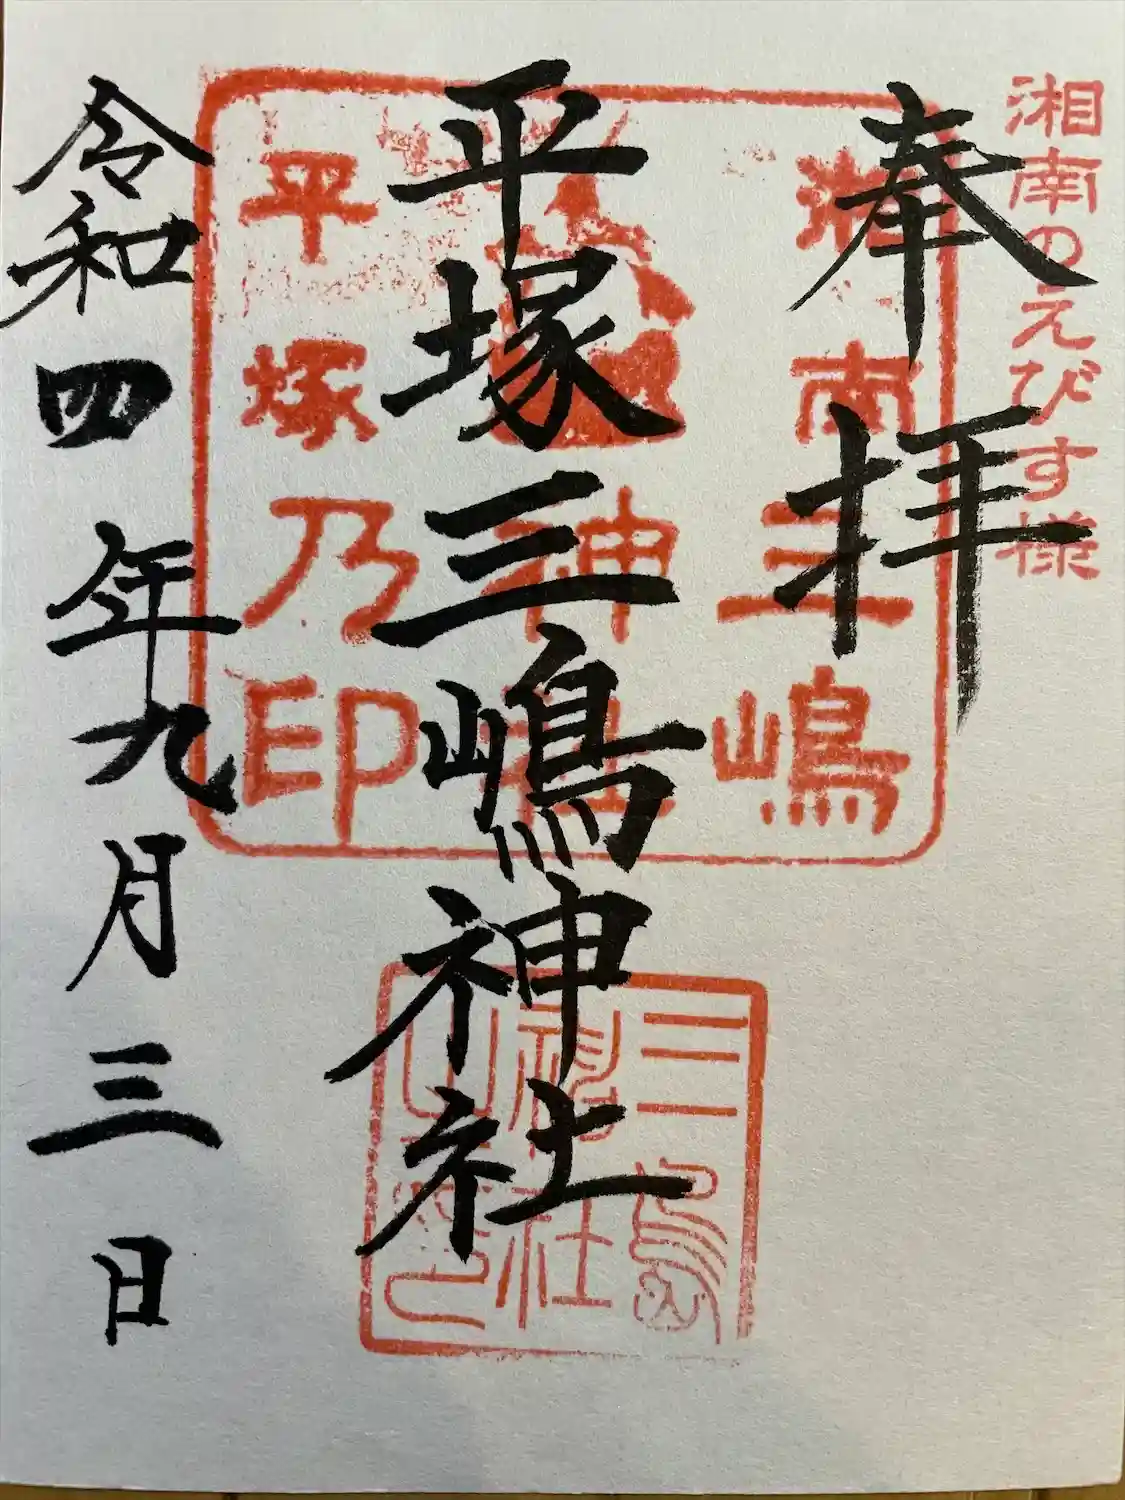 湘南のえびす様
奉拝
湘南三嶋
神社
平塚乃印
平塚三嶋神社
三島
神社
令和四年九月三日